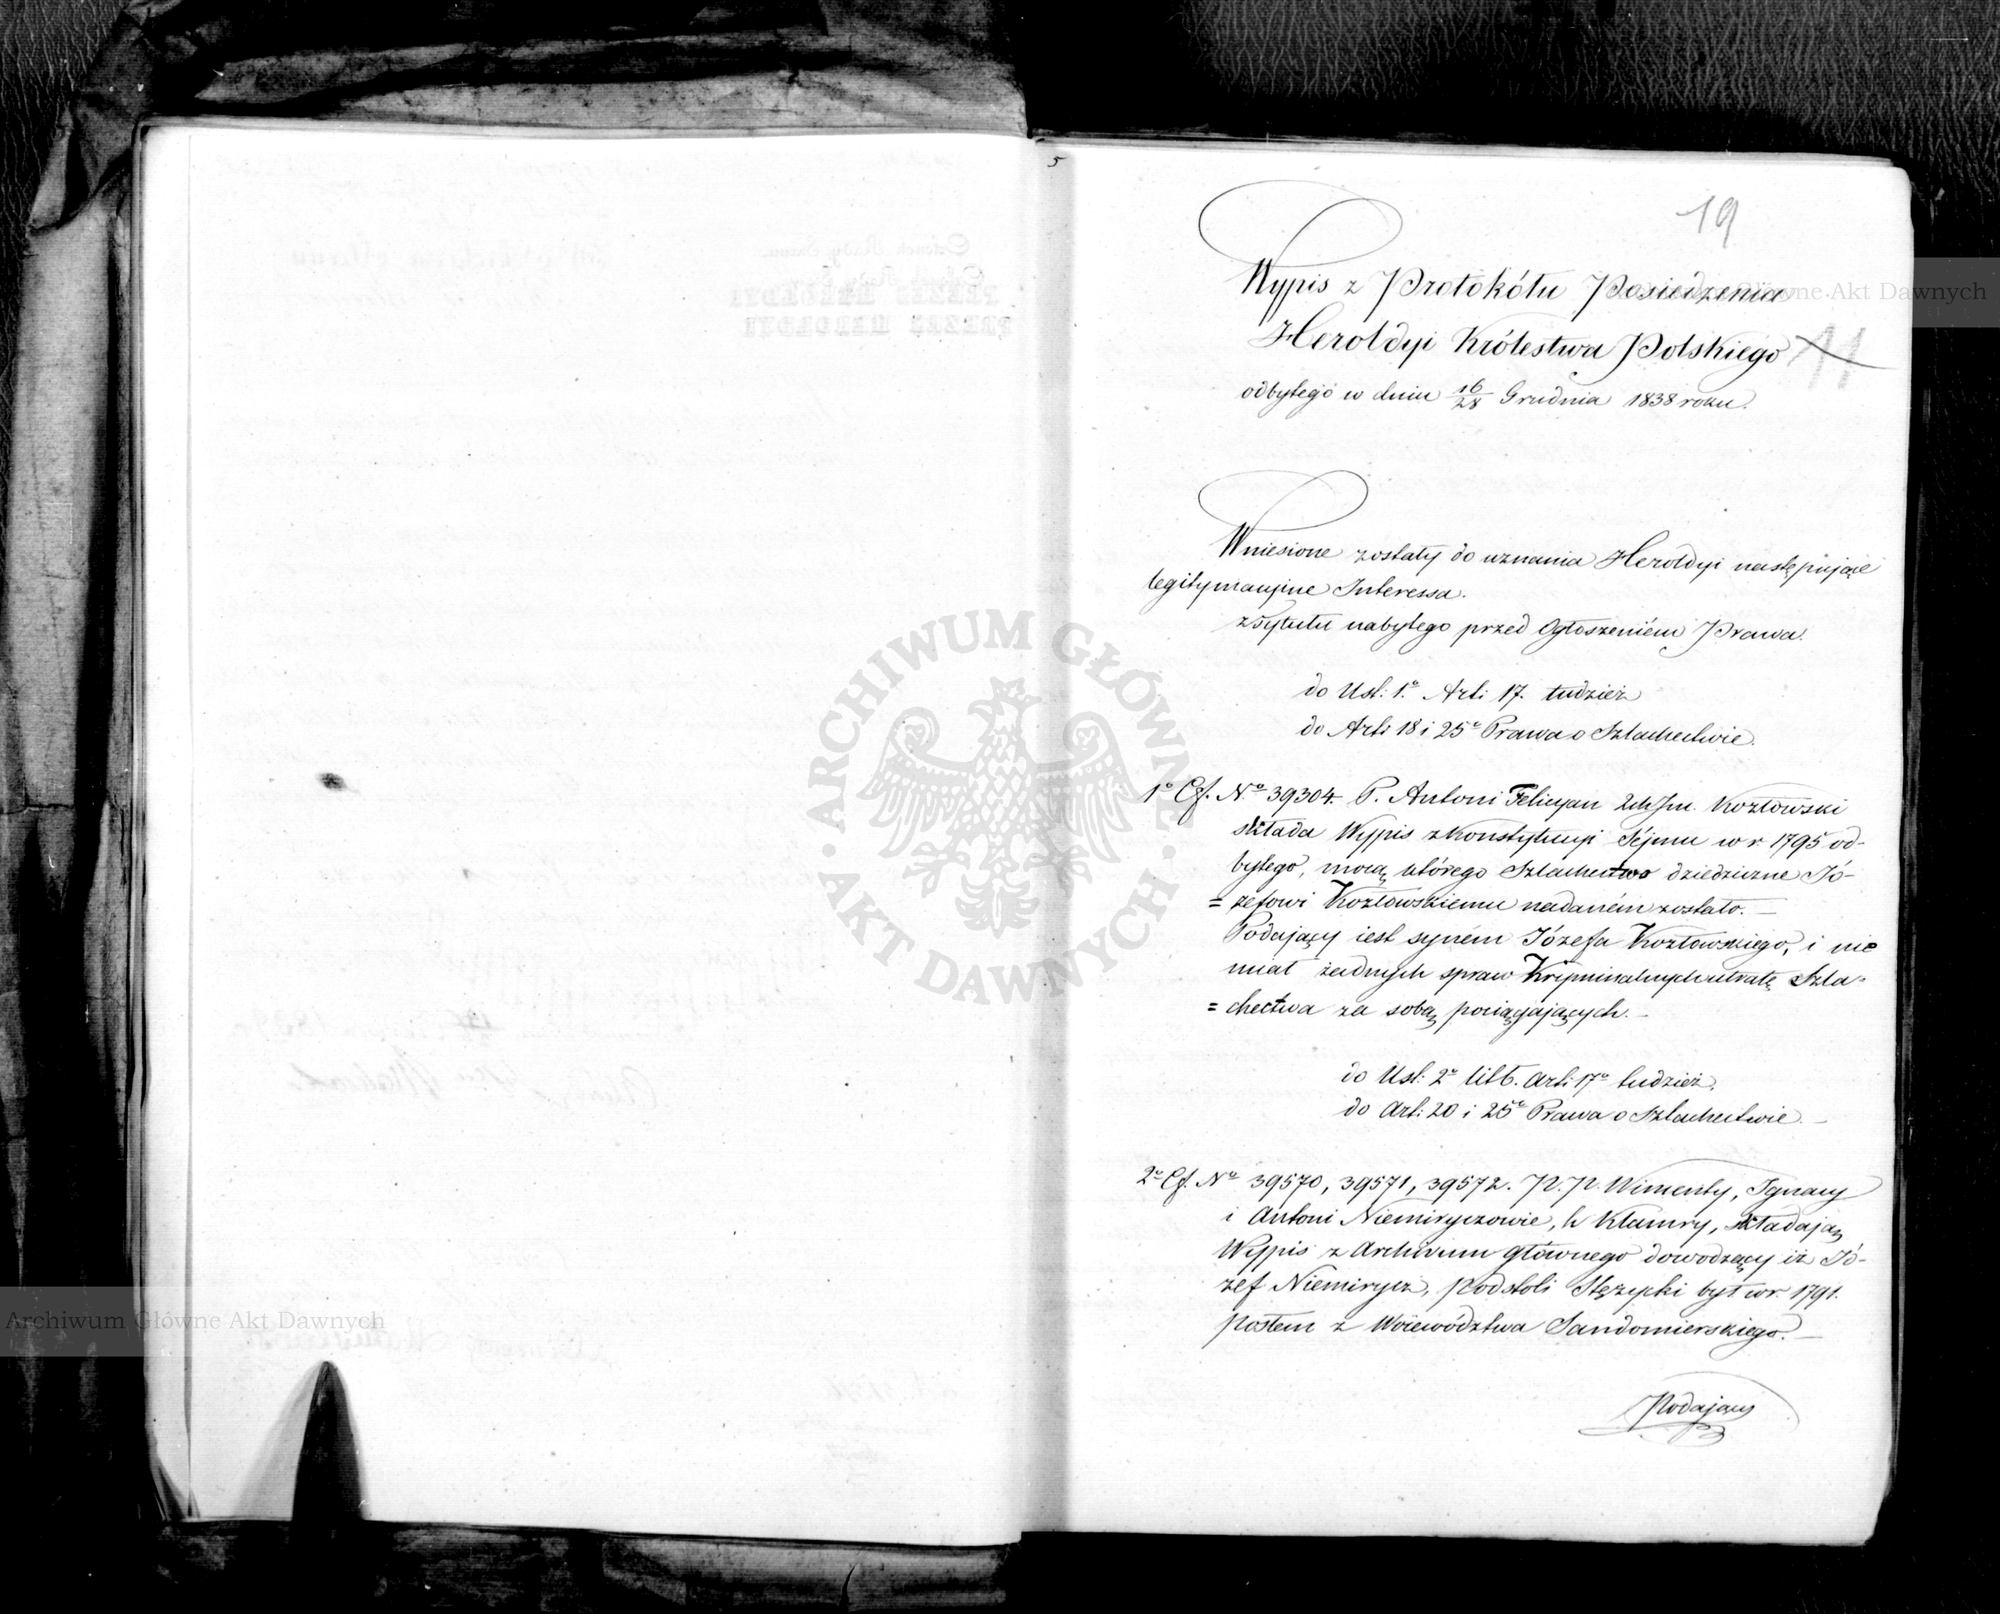 5
19
Wypis z Protokółu Posiedzenia
Heroldyi Królestwa Polskiego
11
odbytego w dniu 16/28 Grudnia 1838 roku.
Wniesione zostały do uznania Heroldyi następujące
legitymacyjne Interessa.
z Tytułu nabytego przed Ogłoszeniem Prawa.
do Ust: 1.º Art: 17. tudzież
do Art: 18 i 25º Prawa o Szlachectwie.
1º Cf. Nº 39304. P. Antoni Felicyan Kozłowski
składa Wypis z Konstytucyi Sejmu w r 1795 od-
bytego, mocą którego Szlachectwo dziedziczne Jó-
= zefowi Kozłowskiemu nadanem zostało. —
Podający iest synem Józefa Kozłowskiego, i nie
miał żadnych spraw Kryminalnych utratę Szla-
= chectwa za sobą pociągających. —
do Ust: 2º litt. Art: 17º tudzież
do Art: 20 i 25º Prawa o Szlachectwie. —
2º Cf. Nº 39570, 39571, 39572. P. P. Wincenty, Ignacy
i Antoni Niemiryczowie, h Klamry, składają
Wypis z Archiwum głównego dowodzący iż Jó-
zef Niemirycz, Podstoli Stężycki był w r. 1791.
Posłem z Województwa Sandomierskiego. —
Podający
ARCHIWUM GŁÓWNE
AKT DAWNYCH
Archiwum Główne Akt Dawnych
Archiwum Główne Akt Dawnych